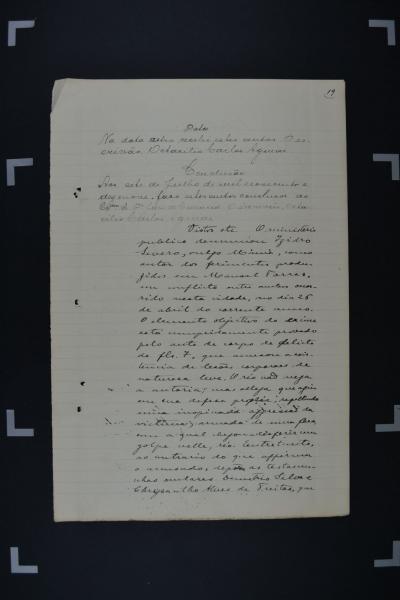 19
Data
Na data retro recebi estes autos. O es-
crivão, Octacilio Carlos Aguiar
Conclusão
Aos sete de Junho de mil novecentos e
dezenove, faço estes autos conclusos ao
O escrivão, Octa-
cilio Carlos Aguiar
Vistos etc. O ministerio
publico denunciou Izidro
Severo, vulgo como
autor dos ferimentos produ-
zidos em Manoel Torres,
em conflicto entre ambos occor-
rido nesta cidade, no dia 26
de abril do corrente anno.
O elemento objectivo do crime
está cumpridamente provado
pelo auto de corpo de delicto
de fls. 7, que a exis-
tencia de lesões corporaes de
natureza leve. O réo não nega
a autoria; mas allega que agiu
em sua defesa propria, repellindo
uma inopinada aggressão da
victima, armada de uma faca
com a qual desferiu um
golpe nelle, réo. Entretanto,
ao contrario do que affirma
o accusado, depõem as testemu-
nhas oculares Demetrio Silva e
Chrysantho Alves de Freitas, que